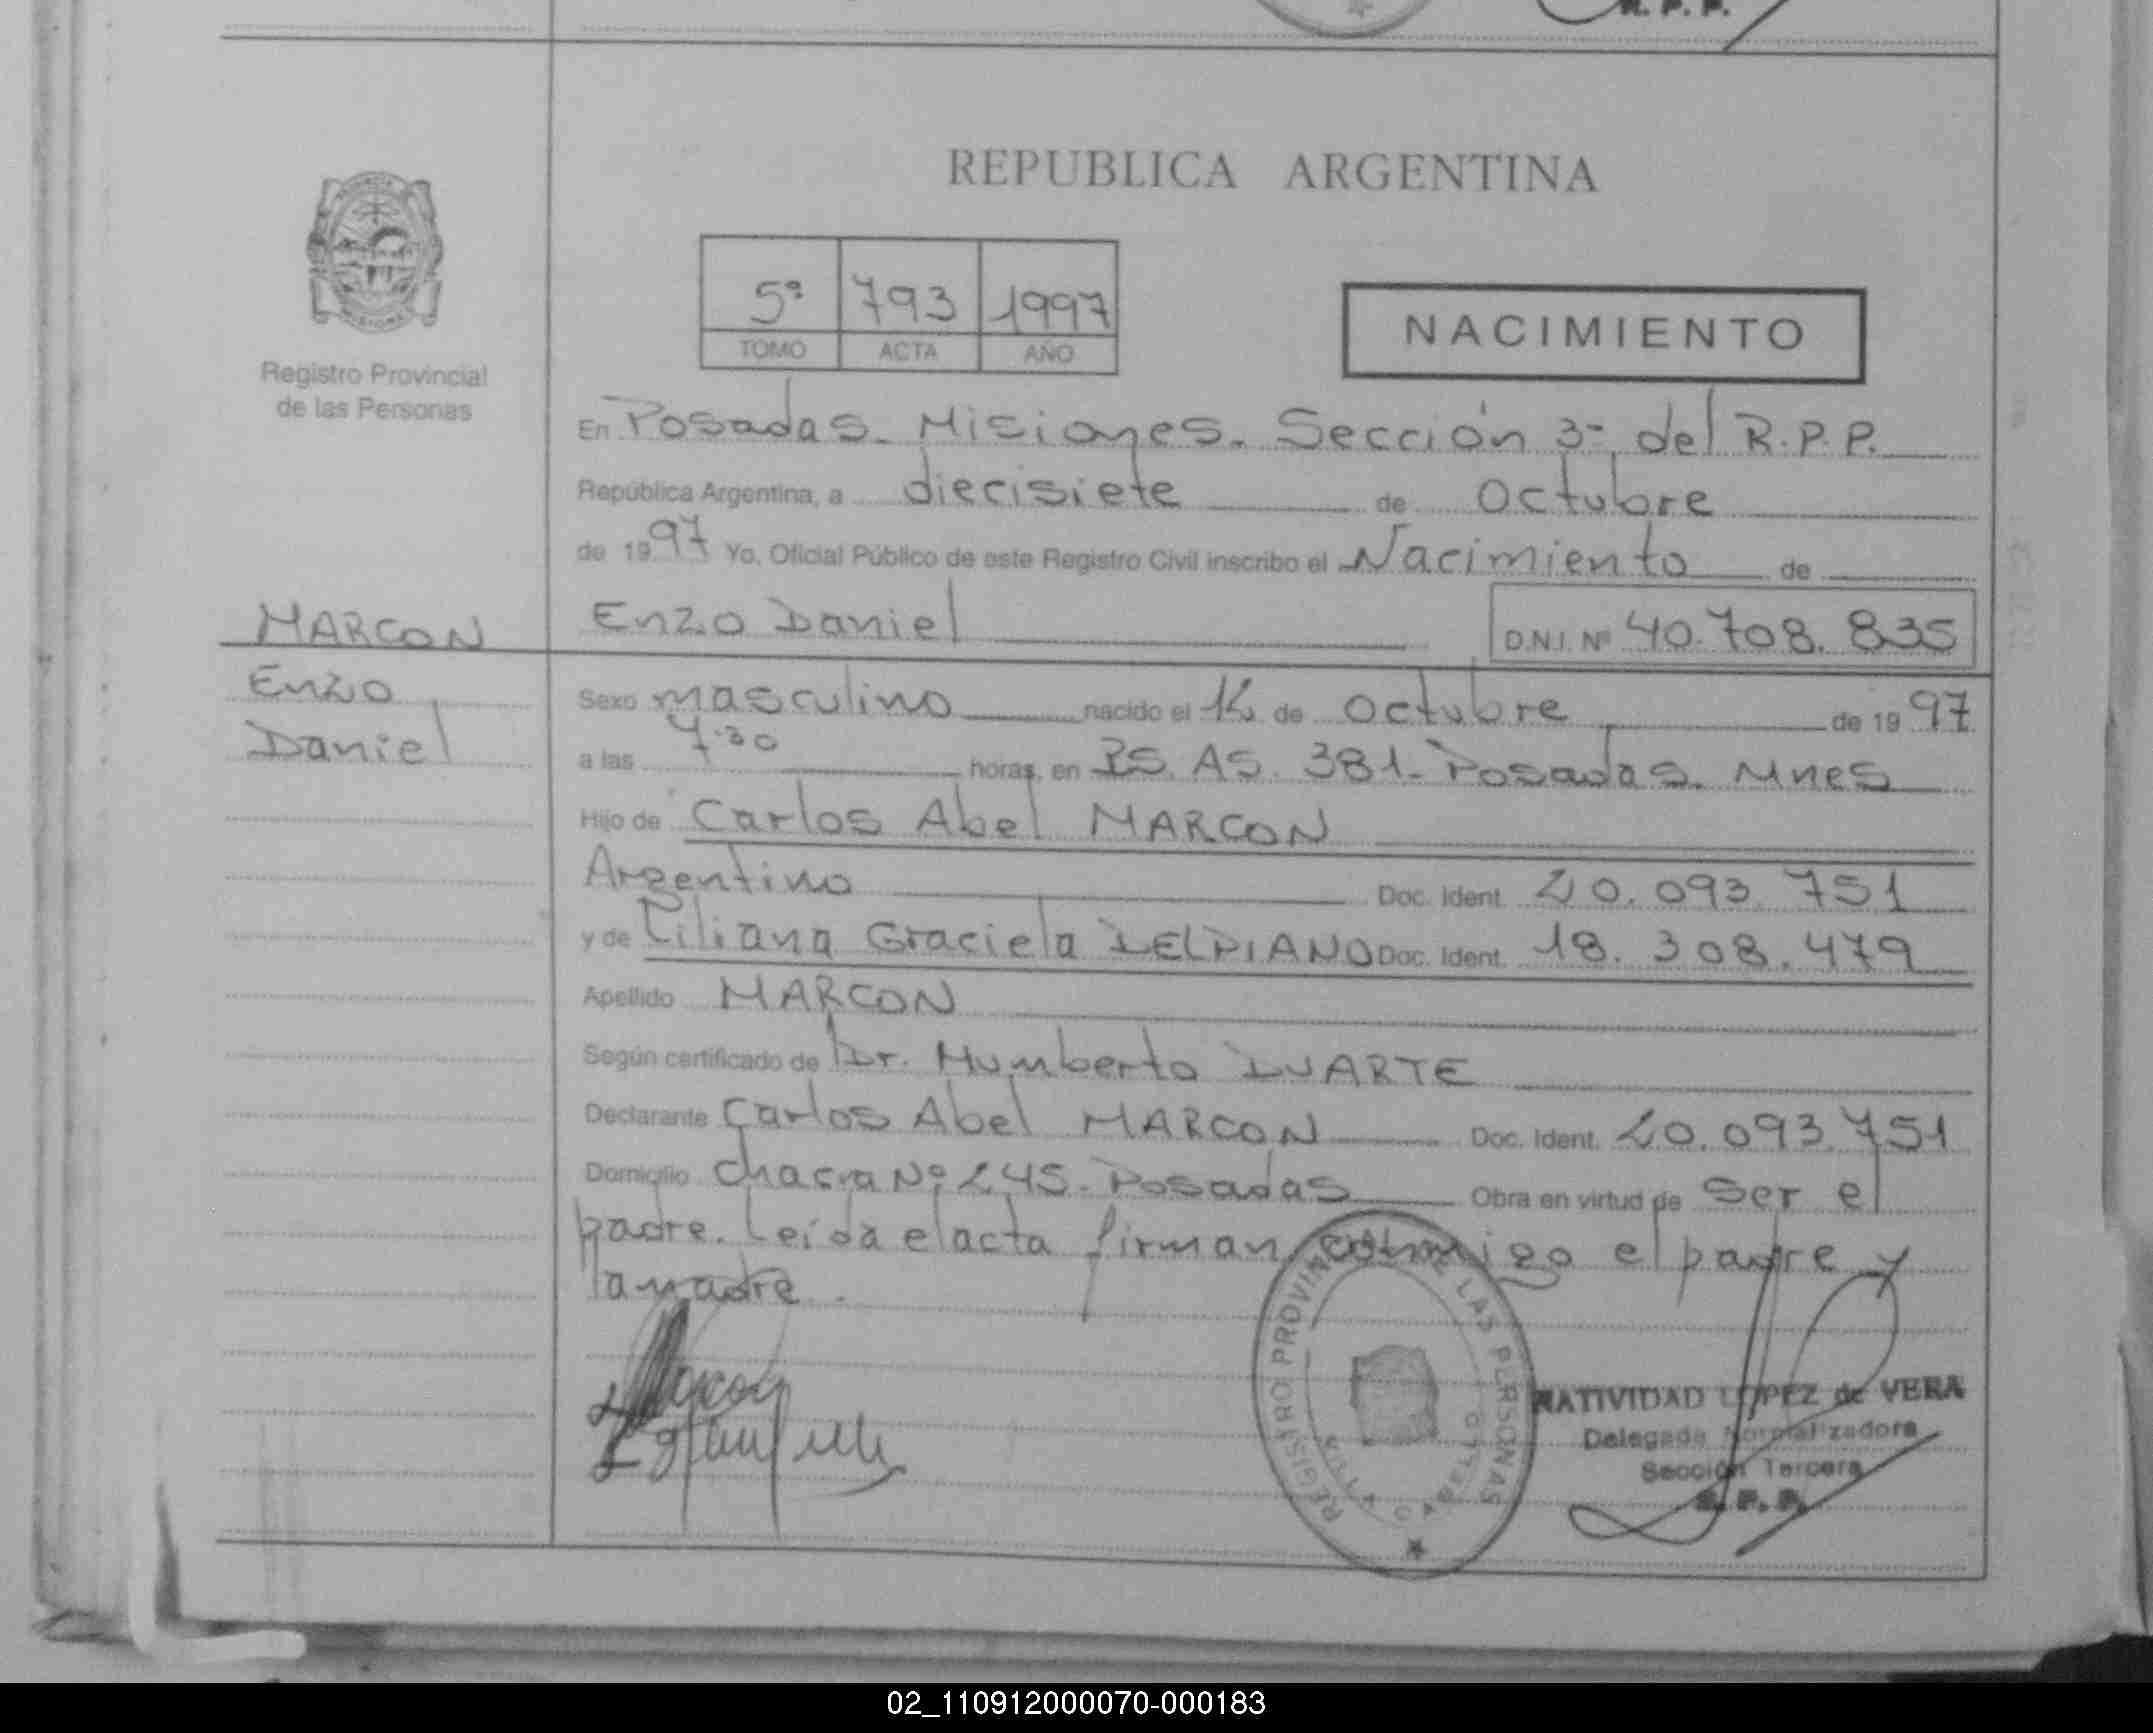 R. P. P.
REPUBLICA ARGENTINA
5ª 793 1997
TOMO ACTA AÑO
NACIMIENTO
Registro Provincial
de las Personas
En Posadas. Misiones. Sección 3ª del R.P.P.
República Argentina, a diecisiete de Octubre
de 1997 Yo, Oficial Público de este Registro Civil inscribo el Nacimiento de
MARCON
Enzo Daniel D.N.I. Nº 40.708.835
Enzo
Daniel
Sexo masculino nacido el de Octubre de 1997
a las 7.30 horas, en BS. AS. 381. Posadas. Mnes
Hijo de Carlos Abel MARCON
Argentino Doc. Ident. 20.093.751
y de Liliana Graciela DELPIANO Doc. Ident. 18.308.479
Apellido MARCON
Según certificado de Dr. Humberto DUARTE
Declarante Carlos Abel MARCON Doc. Ident. 20.093.751
Domicilio Chacra Nº 245. Posadas Obra en virtud de Ser el
padre. Leída el acta firman conmigo el padre y
la madre.
REGISTRO PROVINCIAL DE LAS PERSONAS
VILLA CABELLO
NATIVIDAD LOPEZ de VERA
Delegada Normalizadora
Sección Tercera
R. P. P.
02_110912000070-000183